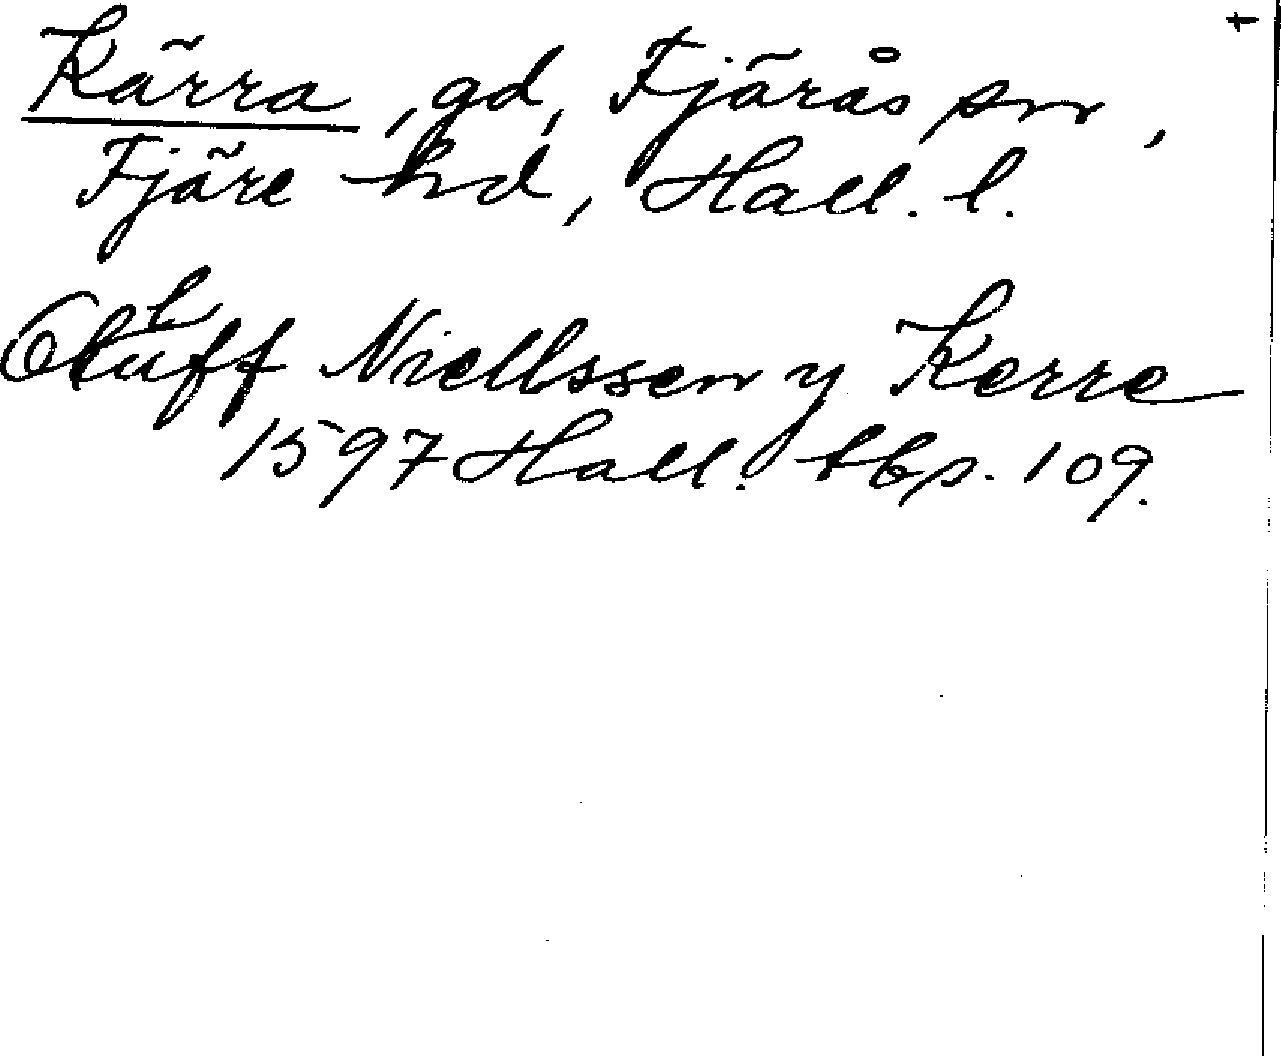 Kärra, gd, Fjärås sn,
Fjäre hd, Hall. l.
Oluff Niellssen y Kerre
1597 Hall. tbs. 109.